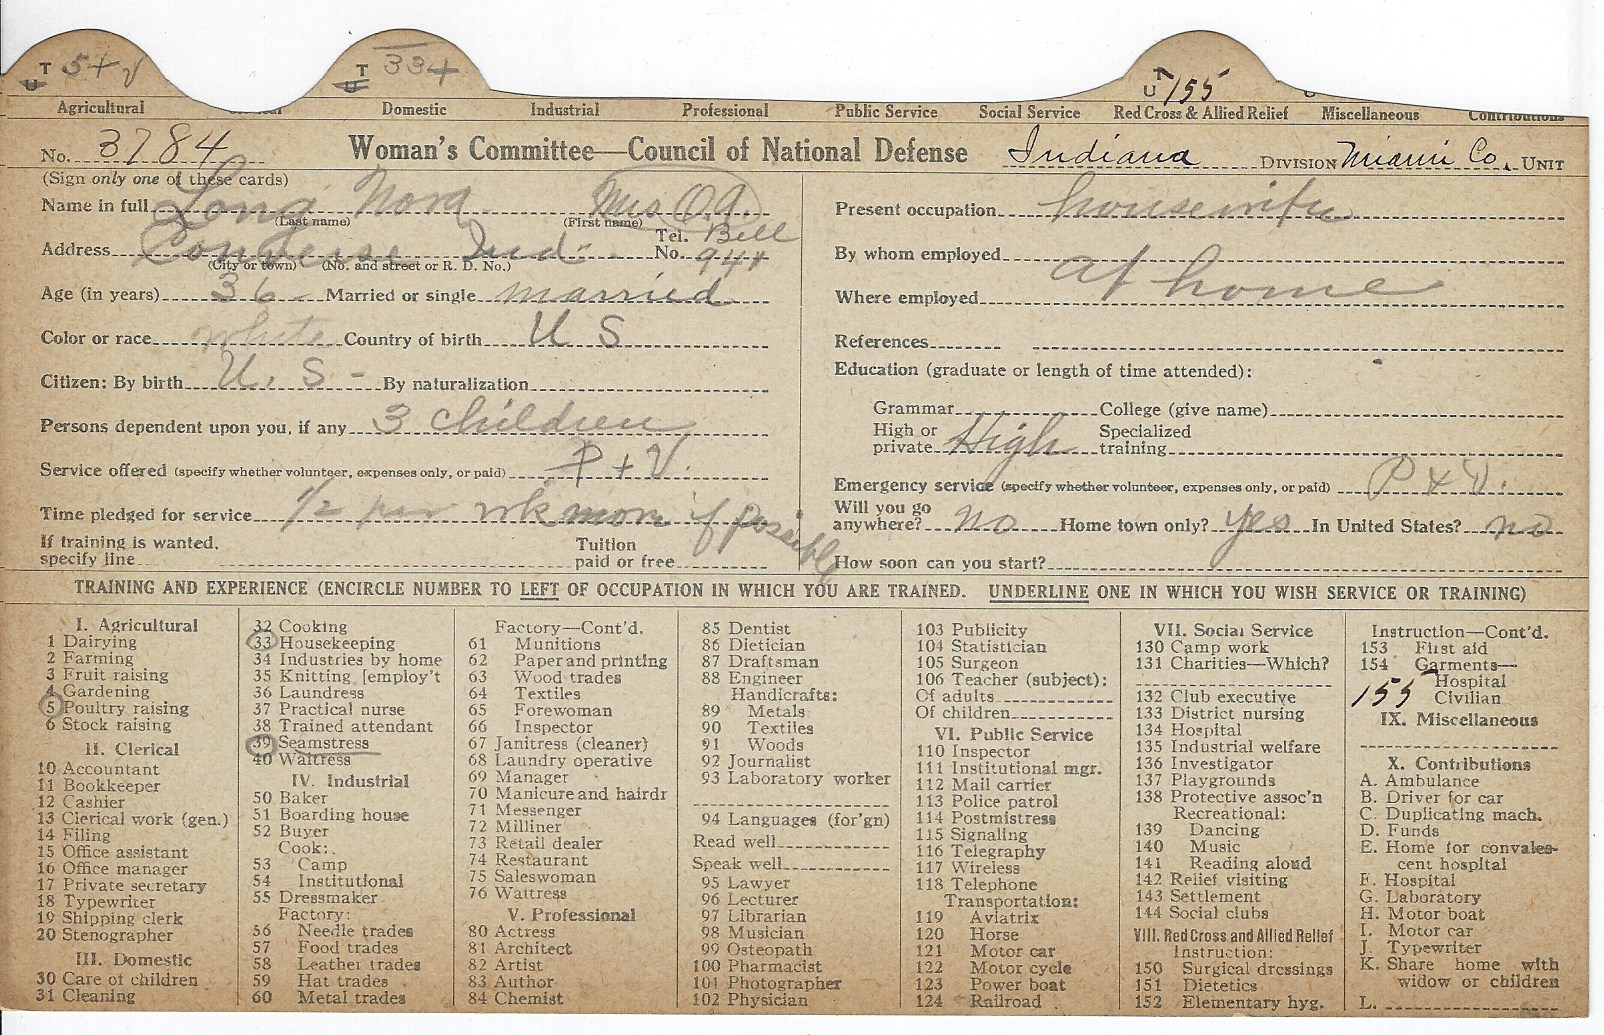 T U 5 + V T U 33 + T U 155
Agricultural Domestic Industrial Professional Public Service Social Service Red Cross & Allied Relief Miscellaneous Contributions
No. 3784 Woman's Committee—Council of National Defense Indiana DIVISION Miami Co. UNIT
(Sign only one of these cards)
Name in full Long Nora Mrs O.A.
(Last name) (First name)
Address Converse Ind. Tel. No. Bell 944
(City or town) (No. and street or R. D. No.)
Age (in years) 36 Married or single married
Color or race white Country of birth U S
Citizen: By birth U. S - By naturalization
Persons dependent upon you, if any 3 children
Service offered (specify whether volunteer, expenses only, or paid) P + V.
Time pledged for service 1/2 per wk more if possible
If training is wanted, specify line Tuition paid or free
Present occupation housewife
By whom employed
at home
Where employed
References
Education (graduate or length of time attended):
Grammar College (give name)
High or private High Specialized training
Emergency service (specify whether volunteer, expenses only, or paid) P & V.
Will you go anywhere? no Home town only? yes In United States? no
How soon can you start?
TRAINING AND EXPERIENCE (ENCIRCLE NUMBER TO LEFT OF OCCUPATION IN WHICH YOU ARE TRAINED. UNDERLINE ONE IN WHICH YOU WISH SERVICE OR TRAINING)
I. Agricultural
1 Dairying
2 Farming
3 Fruit raising
4 Gardening
5 Poultry raising
6 Stock raising
II. Clerical
10 Accountant
11 Bookkeeper
12 Cashier
13 Clerical work (gen.)
14 Filing
15 Office assistant
16 Office manager
17 Private secretary
18 Typewriter
19 Shipping clerk
20 Stenographer
III. Domestic
30 Care of children
31 Cleaning
32 Cooking
33 Housekeeping
34 Industries by home
35 Knitting [employ't
36 Laundress
37 Practical nurse
38 Trained attendant
39 Seamstress
40 Waitress
IV. Industrial
50 Baker
51 Boarding house
52 Buyer
Cook:
53 Camp
54 Institutional
55 Dressmaker
Factory:
56 Needle trades
57 Food trades
58 Leather trades
59 Hat trades
60 Metal trades
Factory—Cont'd.
61 Munitions
62 Paper and printing
63 Wood trades
64 Textiles
65 Forewoman
66 Inspector
67 Janitress (cleaner)
68 Laundry operative
69 Manager
70 Manicure and hairdr
71 Messenger
72 Milliner
73 Retail dealer
74 Restaurant
75 Saleswoman
76 Waitress
V. Professional
80 Actress
81 Architect
82 Artist
83 Author
84 Chemist
85 Dentist
86 Dietician
87 Draftsman
88 Engineer
Handicrafts:
89 Metals
90 Textiles
91 Woods
92 Journalist
93 Laboratory worker
94 Languages (for'gn)
Read well
Speak well
95 Lawyer
96 Lecturer
97 Librarian
98 Musician
99 Osteopath
100 Pharmacist
101 Photographer
102 Physician
103 Publicity
104 Statistician
105 Surgeon
106 Teacher (subject):
Of adults
Of children
VI. Public Service
110 Inspector
111 Institutional mgr.
112 Mail carrier
113 Police patrol
114 Postmistress
115 Signaling
116 Telegraphy
117 Wireless
118 Telephone
Transportation:
119 Aviatrix
120 Horse
121 Motor car
122 Motor cycle
123 Power boat
124 Railroad
VII. Social Service
130 Camp work
131 Charities—Which?
132 Club executive
133 District nursing
134 Hospital
135 Industrial welfare
136 Investigator
137 Playgrounds
138 Protective assoc'n
Recreational:
139 Dancing
140 Music
141 Reading aloud
142 Relief visiting
143 Settlement
144 Social clubs
VIII. Red Cross and Allied Relief
Instruction:
150 Surgical dressings
151 Dietetics
152 Elementary hyg.
Instruction—Cont'd.
153 First aid
154 Garments—
Hospital
155 Civilian
IX. Miscellaneous
X. Contributions
A. Ambulance
B. Driver for car
C. Duplicating mach.
D. Funds
E. Home for convales-
cent hospital
F. Hospital
G. Laboratory
H. Motor boat
I. Motor car
J. Typewriter
K. Share home with
widow or children
L.